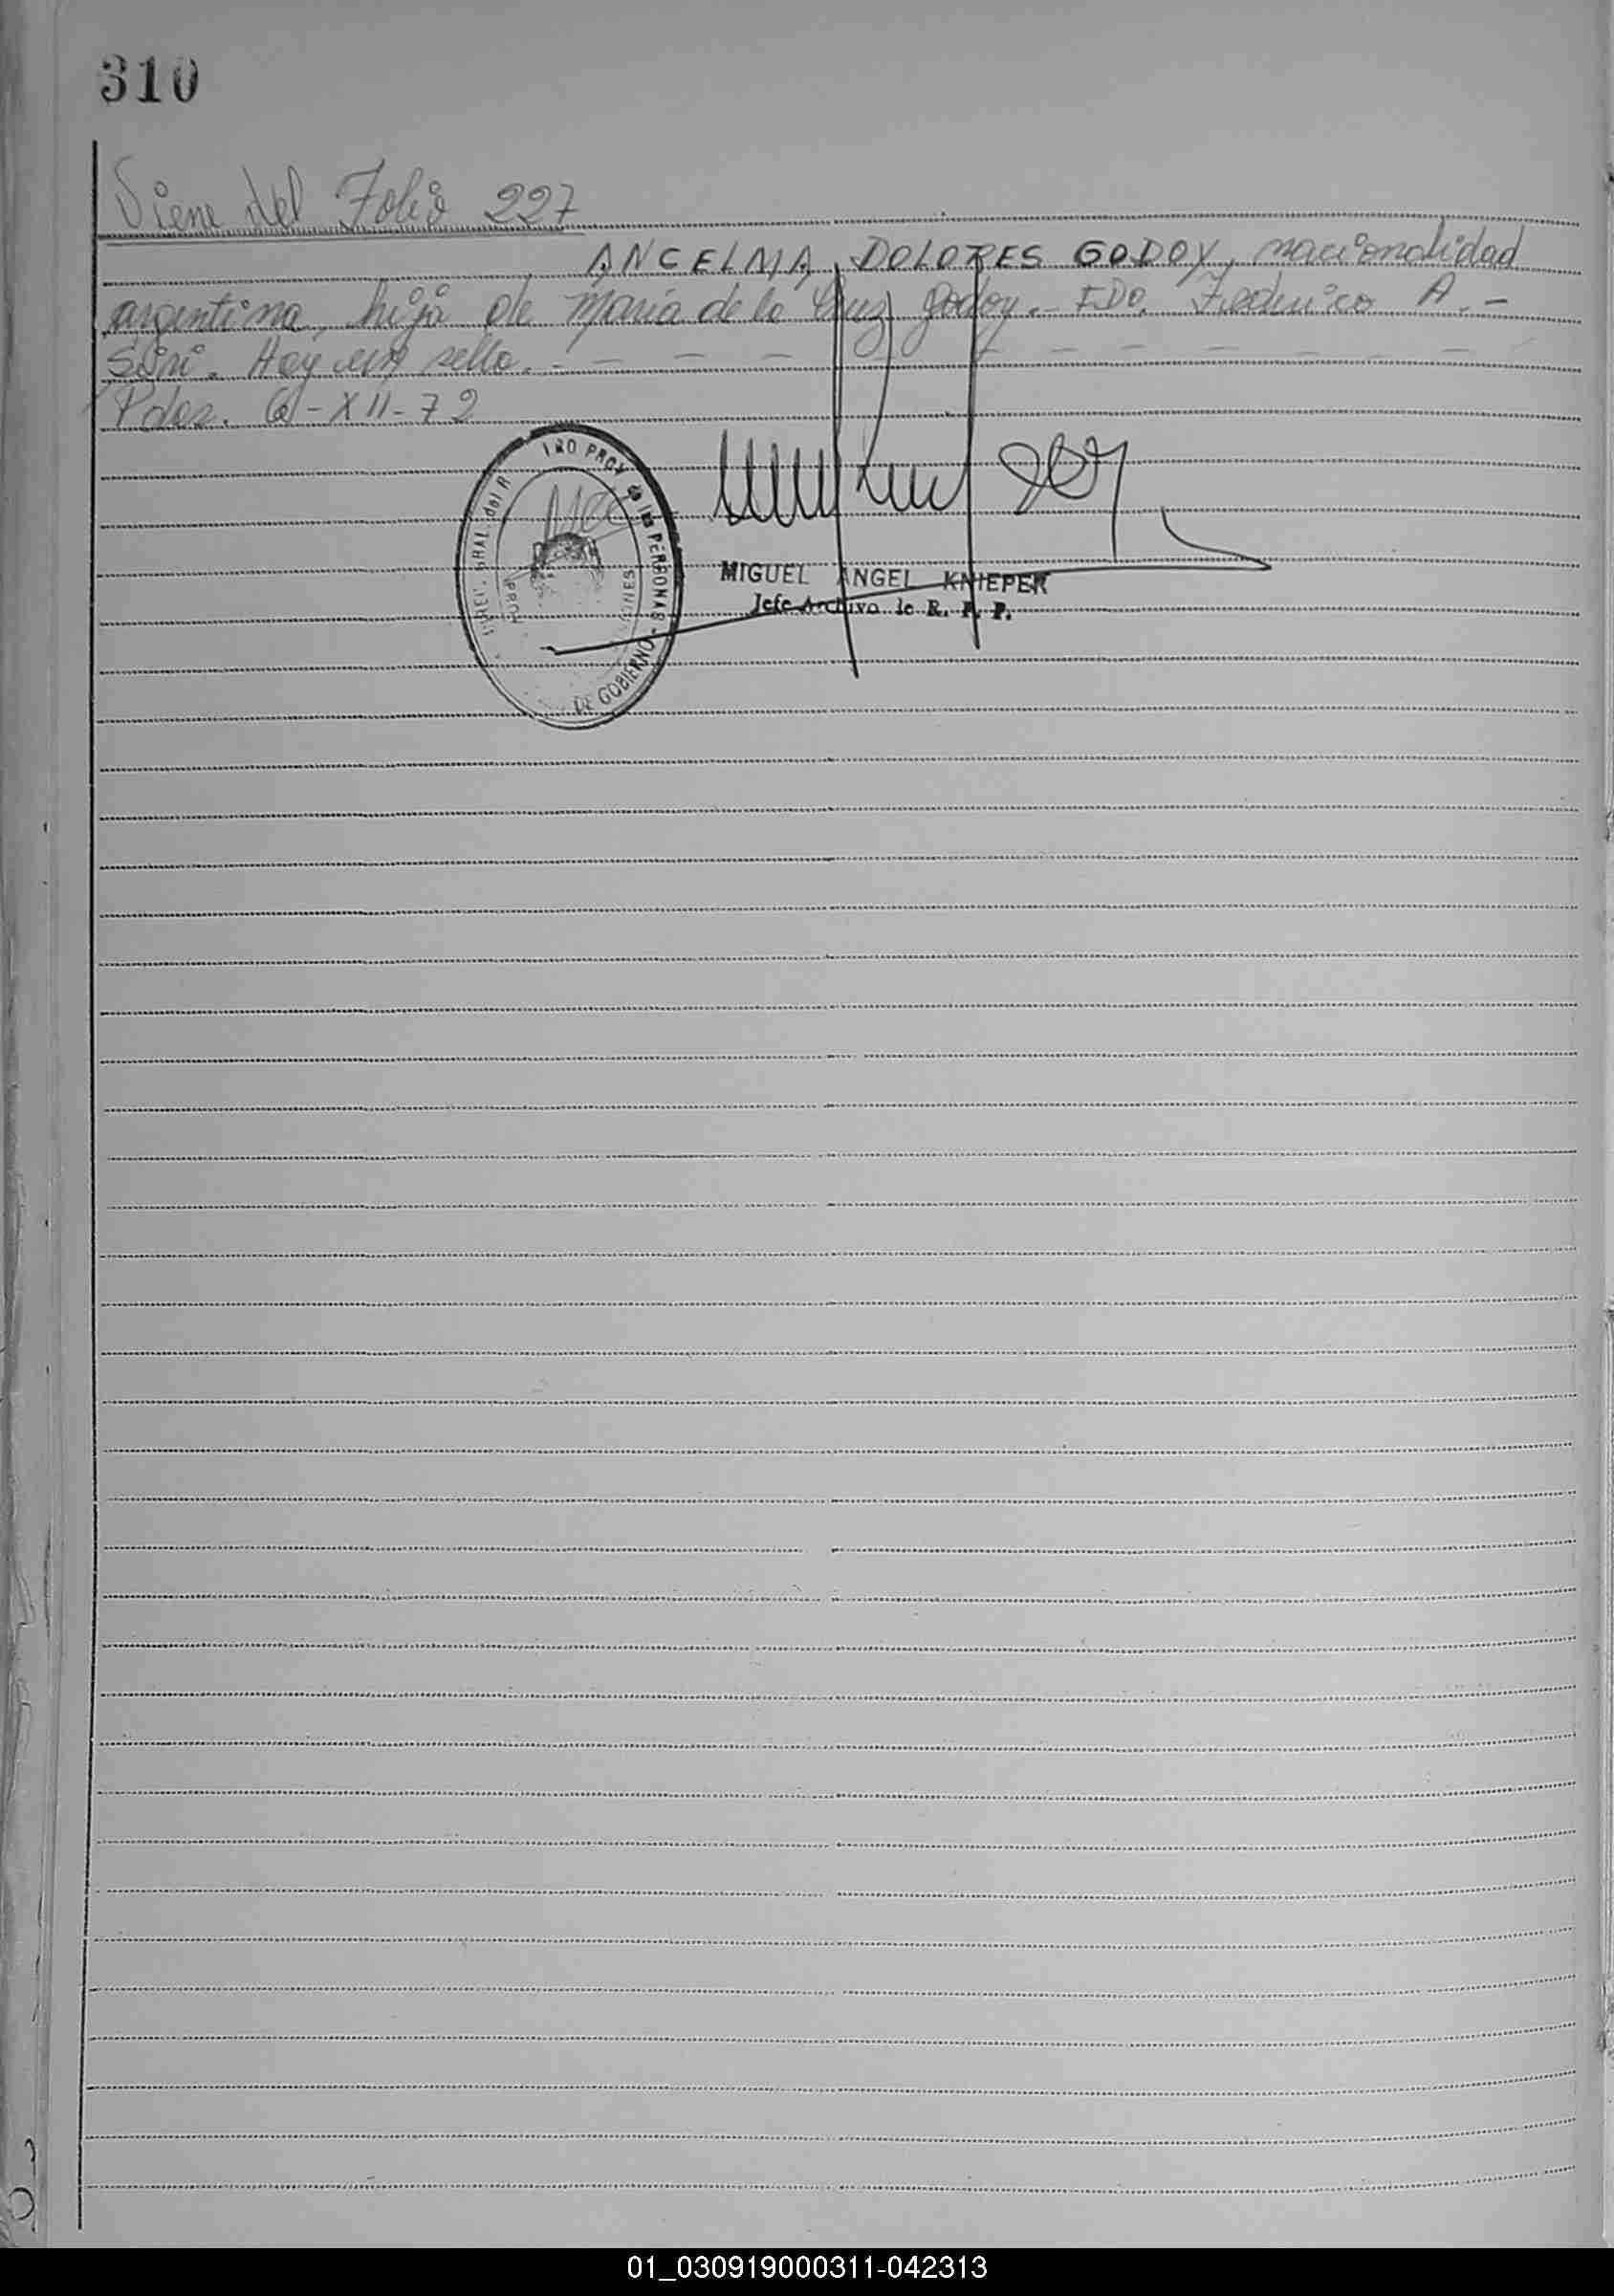 310
Viene del Folio 227
ANCELMA DOLORES GODOY, nacionalidad
argentina, hija de Maria de la Cruz Godoy.- FDO. Federico A. -
Siri. Hay un sello. - - - - - - - - - -
Pdas. 6-XII-72
MIGUEL ANGEL KNIEPER
Jefe Archivo de R. P. P.
PROV de las PERSONAS -
DE GOBIERNO
01_030919000311-042313